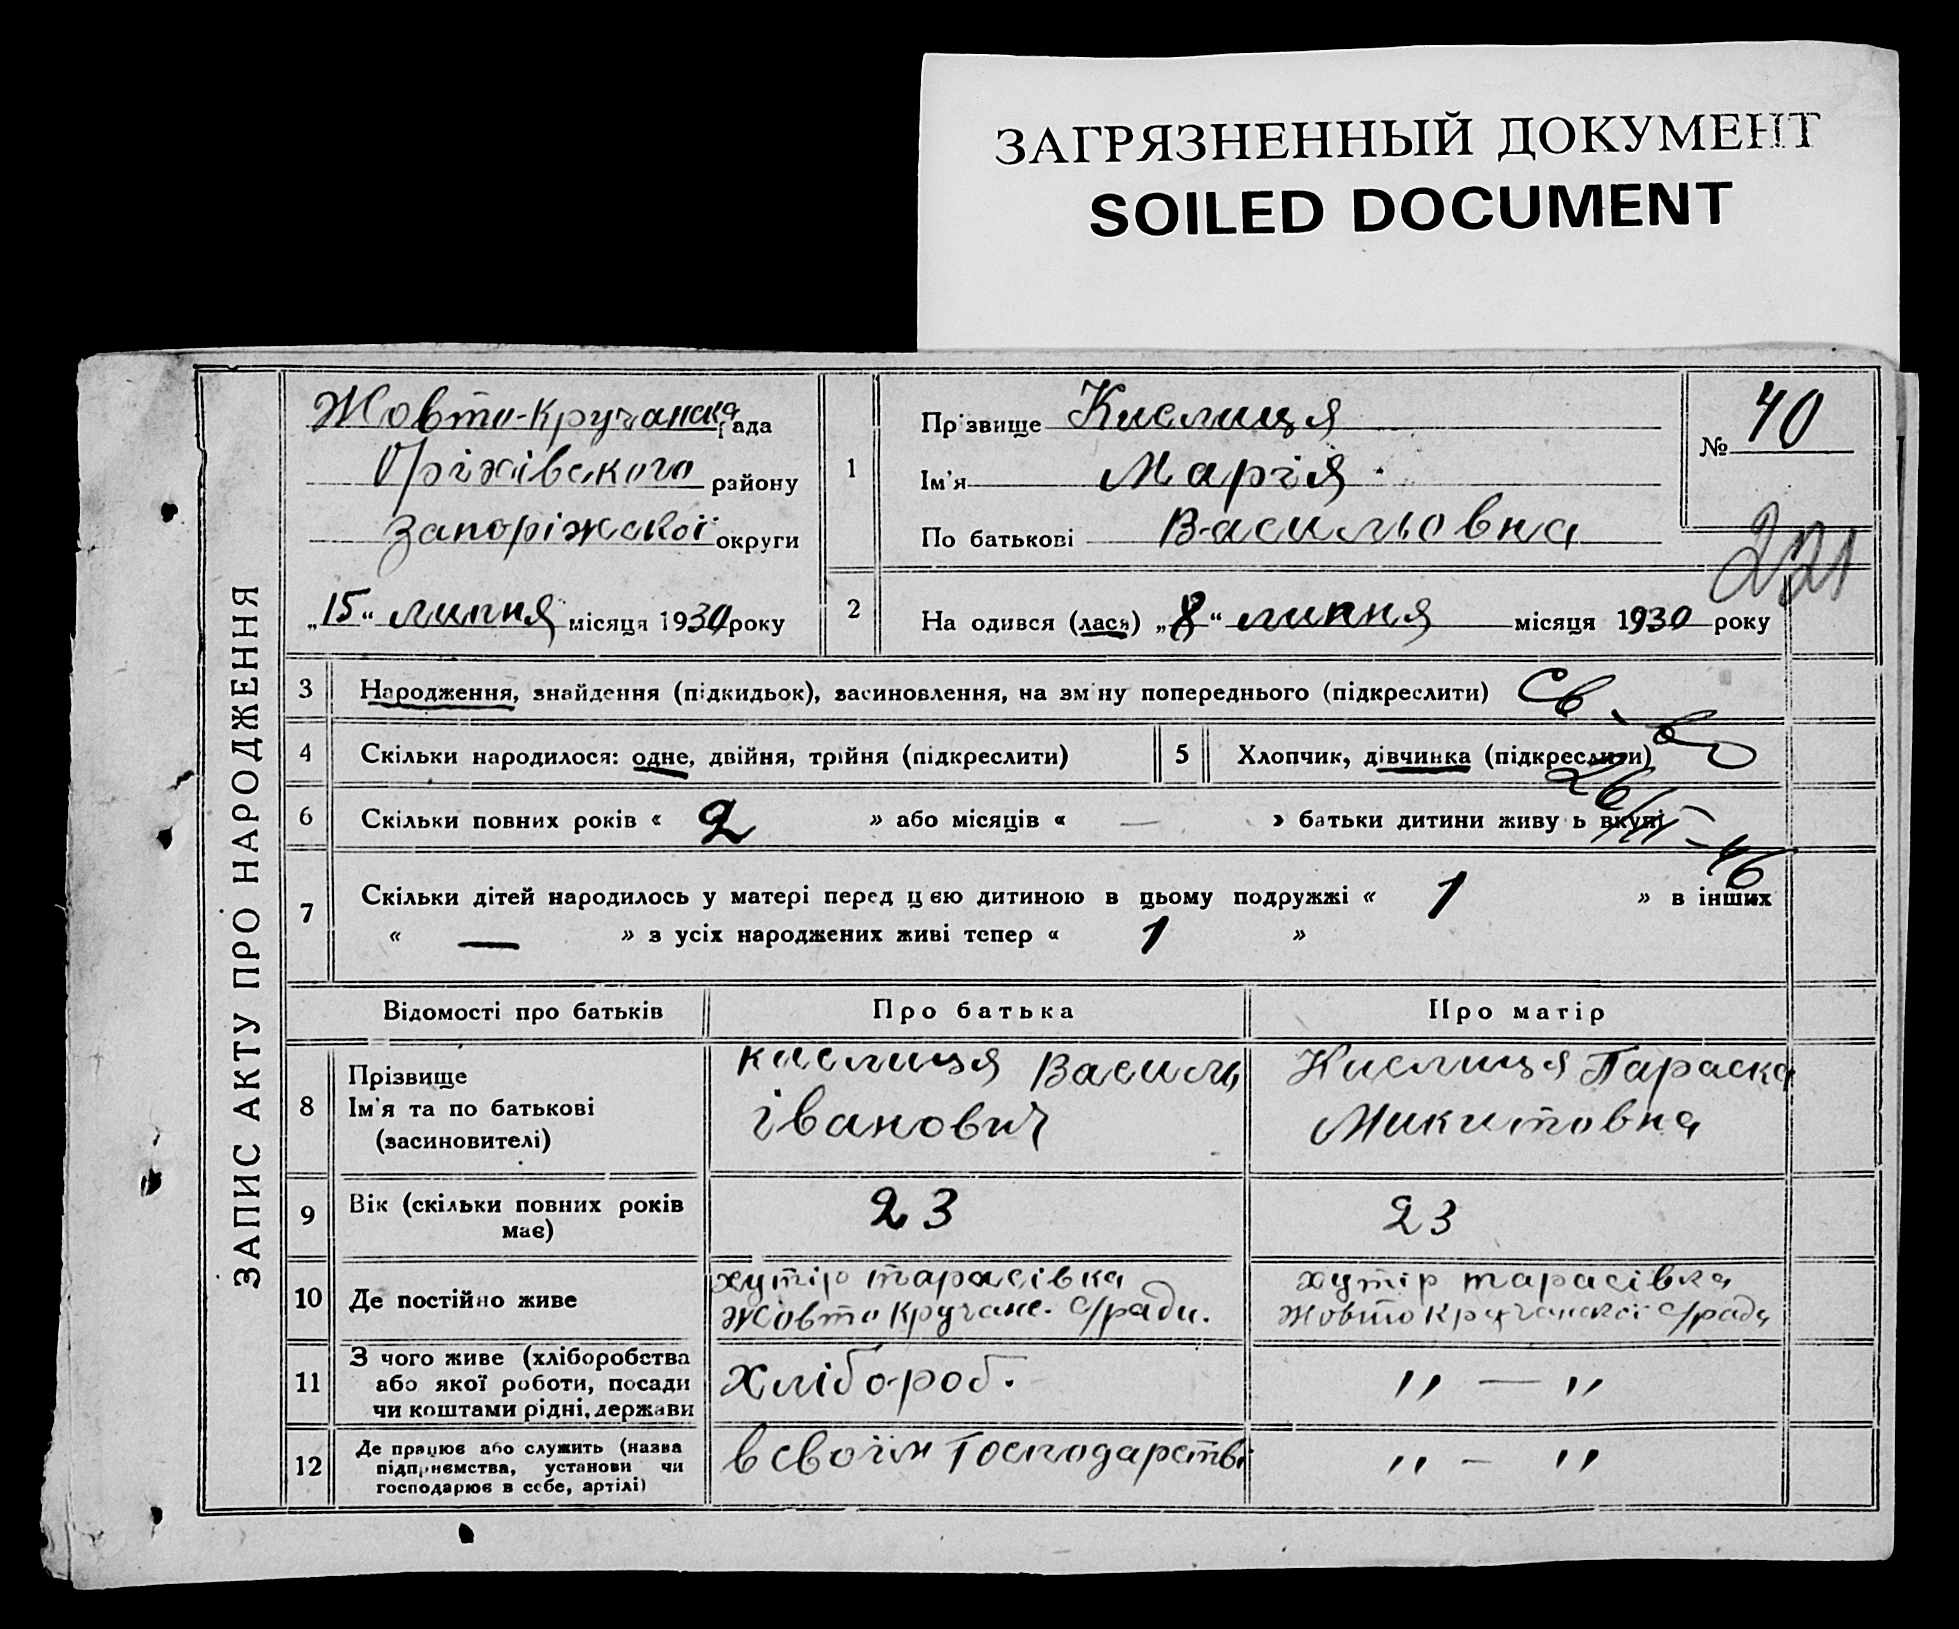 ЗАГРЯЗНЕННЫЙ ДОКУМЕНТ
SOILED DOCUMENT
ЗАПИС АКТУ ПРО НАРОДЖЕННЯ
Жовто-Кручанска рада
Оріхівского району
Запоріжскої округи
„15“ липня місяця 1930 року
1
Прізвище Кислиця
Ім'я Марія
По батькові Васильовна
№ 40
221
2 На одився (лася) „8“ липня місяця 1930 року
3 Народження, знайдення (підкидьок), засиновлення, на зміну попереднього (підкреслити) Св-во
4 Скільки народилося: одне, двійня, трійня (підкреслити) 5 Хлопчик, дівчинка (підкреслити)
6 Скільки повних років « 2 » або місяців « — » батьки дитини живу ь вкупі
26/III-46
7 Скільки дітей народилось у матері перед цією дитиною в цьому подружжі « 1 » в інших
« — » з усіх народжених живі тепер « 1 »
Відомості про батьків Про батька Про матір
8 Прізвище
Ім'я та по батькові
(засиновителі)
Кислиця Василь
Іванович
Кислиця Параска
Микитовна
9 Вік (скільки повних років
має)
23 23
10 Де постійно живе
хутір тарасівка
Жовто Кручанс. с/ради.
хутір тарасівка
Жовто Кручанскої с/ради
11 З чого живе (хліборобства
або якої роботи, посади
чи коштами рідні, держави
Хлібороб. " — "
12 Де працює або служить (назва
підприємства, установи чи
господарює в себе, артілі)
в своїм Господарстві " - "